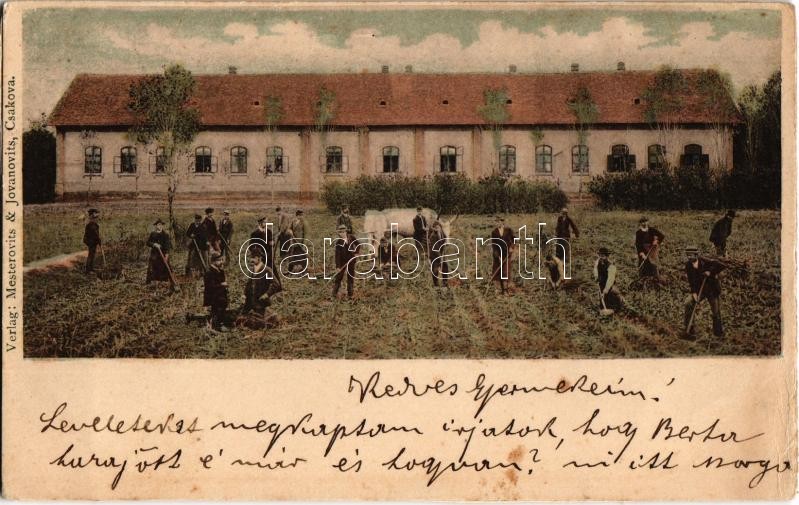 Verlag: Mesterovits & Jovanovits, Csakova.
darabanth
Kedves Gyermekeim!
Leveleteket megkaptam irjatok, hogy Berta
hazajött é már és hogyvan? mi itt